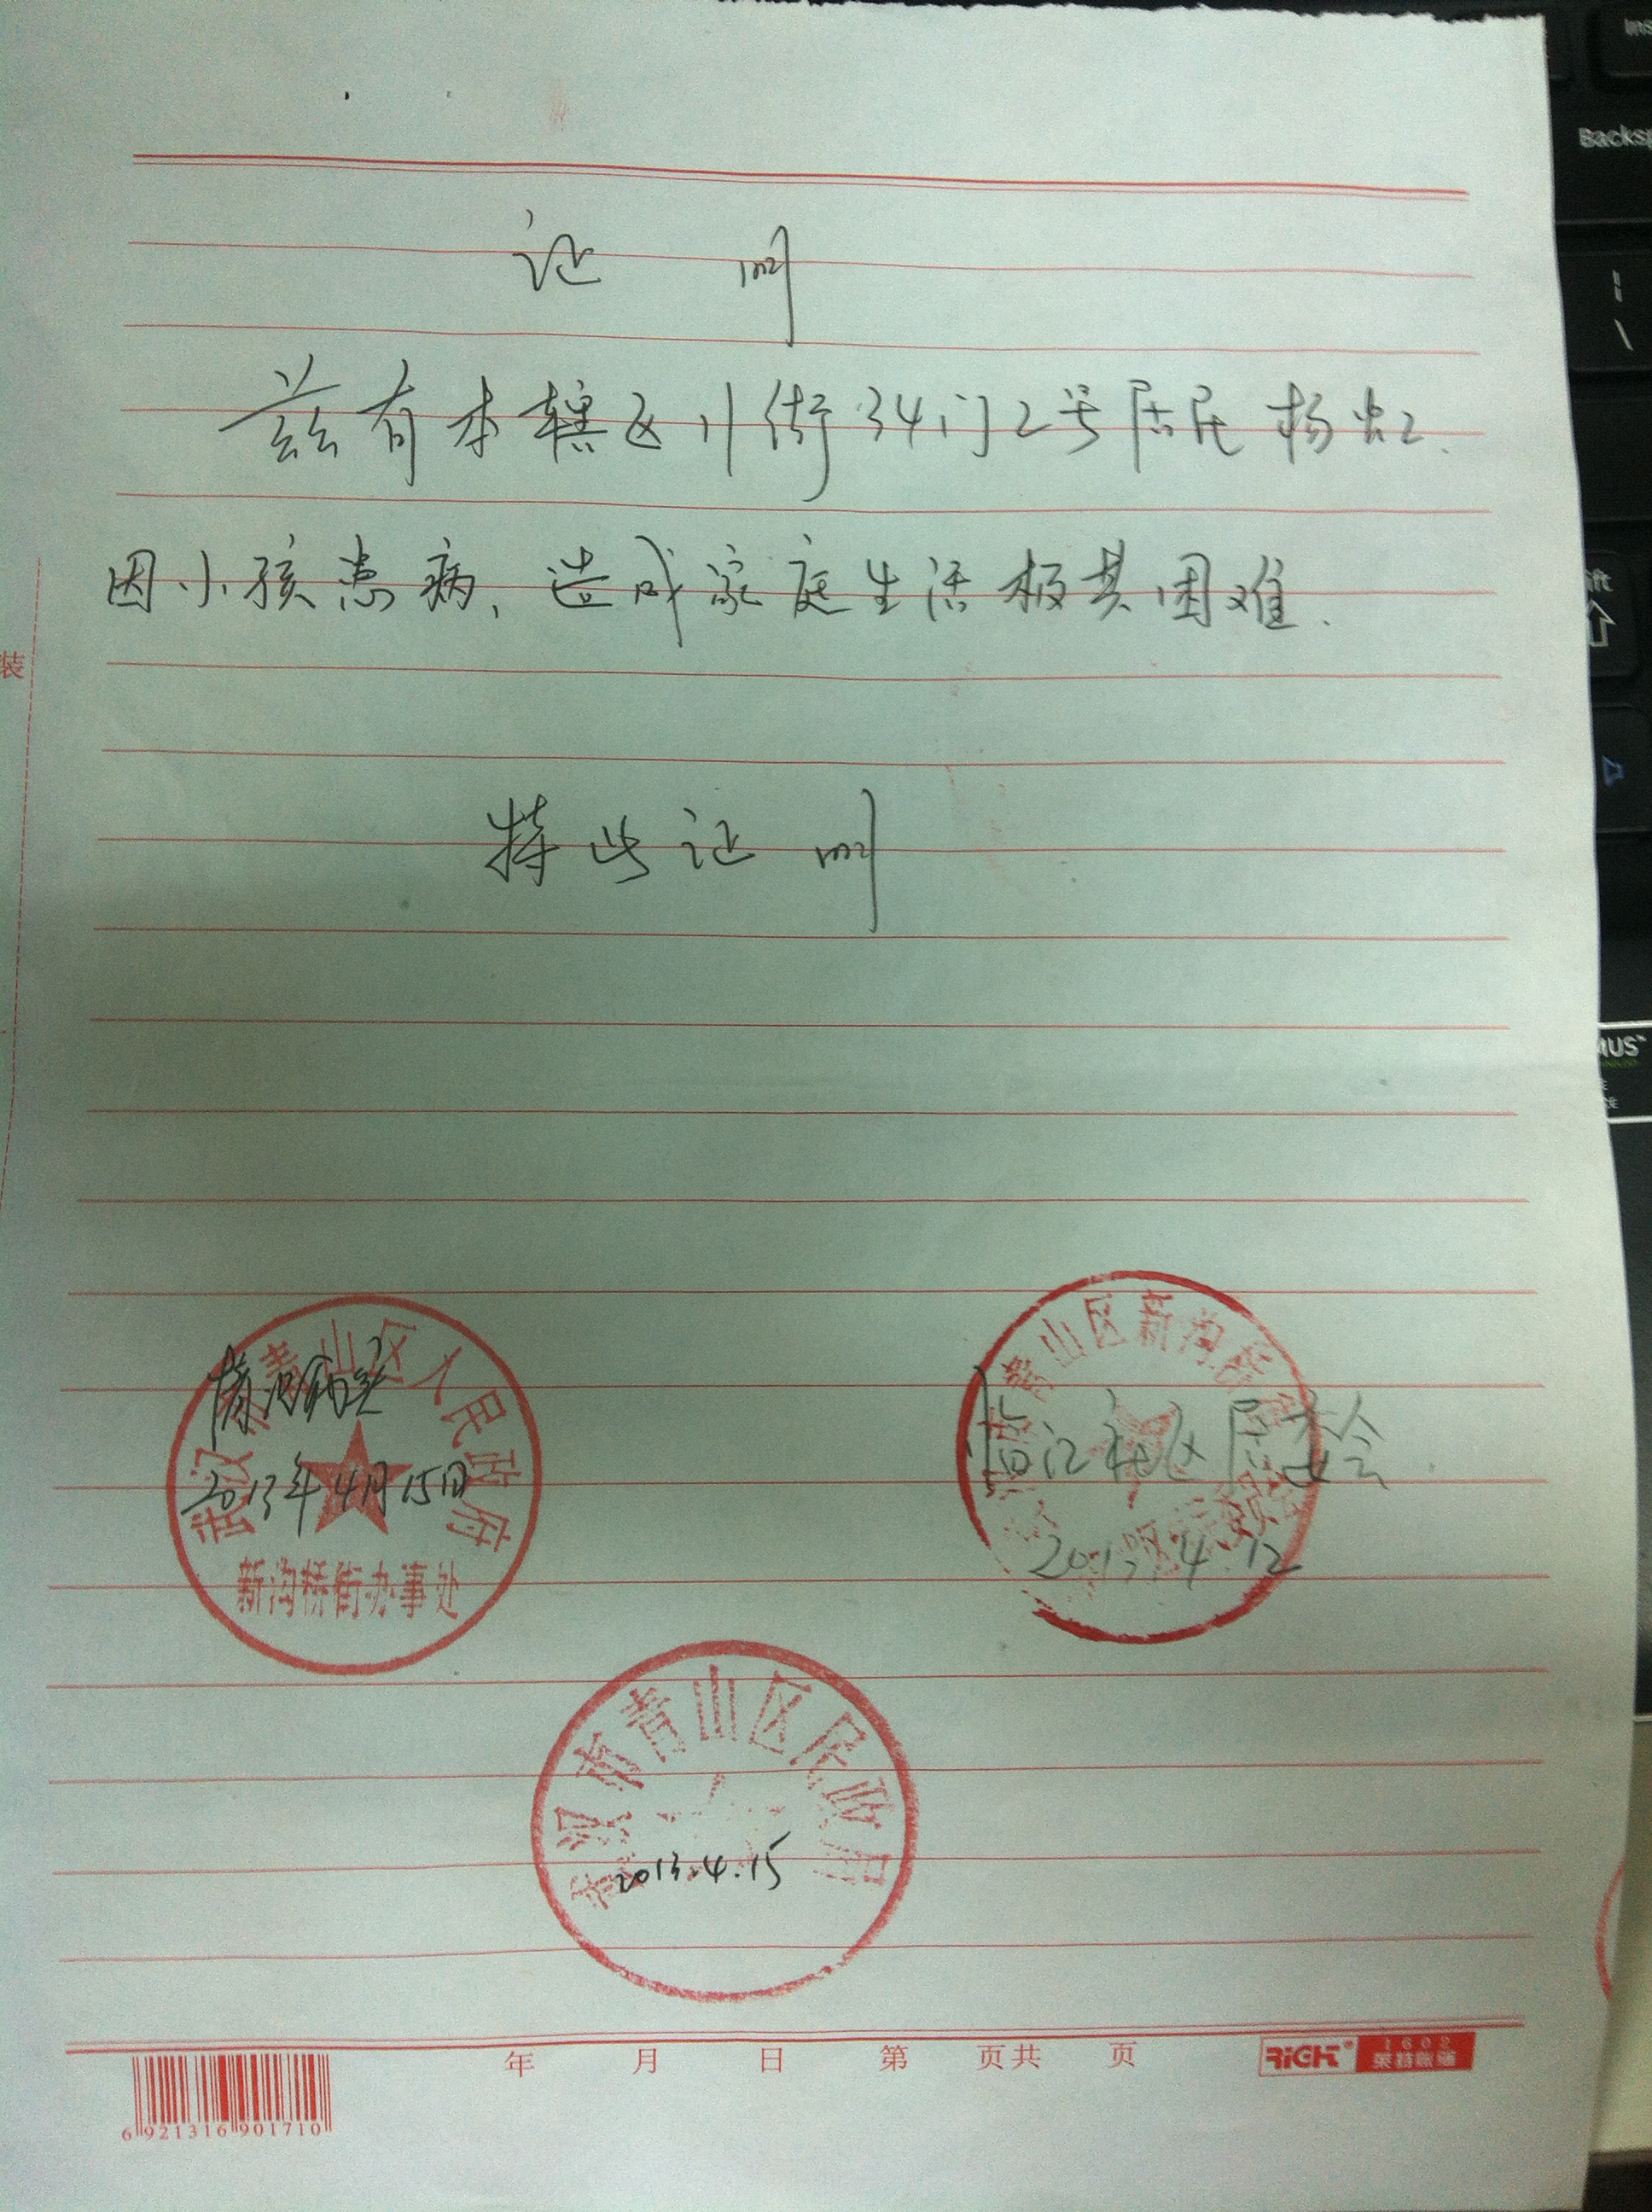 证明
兹有本辖区川街34门2号居民杨
因小孩患病，造成家庭生活极其困难.
特此证明
武汉市青山区人民政府
情况属实
2013年4月15日
新沟桥街办事处
青山区新沟桥
临江社区居委会
2013.4.12
武汉市青山区民政局
2013.4.15
年 月 日 第 页共 页
RIGHT 1602
莱特账簿
6921316901710
装
Backsp
Ins